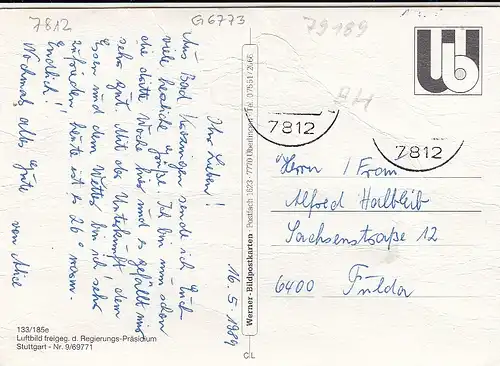 7812
G 6773
79189
Ihr Lieben!
Aus Bad Krozingen sende ich Euch
viele herzliche Grüße. Ich bin nun schon
die dritte Woche hier und es gefällt mir
sehr gut. Mit der Unterkunft, dem
Essen und dem Wetter bin ich sehr
zufrieden, heute ist es 26° warm.
Endlich!
Nochmals alles Gute
von Alice
16.5.1989
133/185e
Luftbild freigeg. d. Regierungs-Präsidium
Stuttgart - Nr. 9/69771
Werner-Bildpostkarten · Postfach 1823 · 7770 Überlingen · Tel. 07551/2666
C/L
7812
7812
Herrn / Frau
Alfred Halbleib
Sachsenstraße 12
6400 Fulda